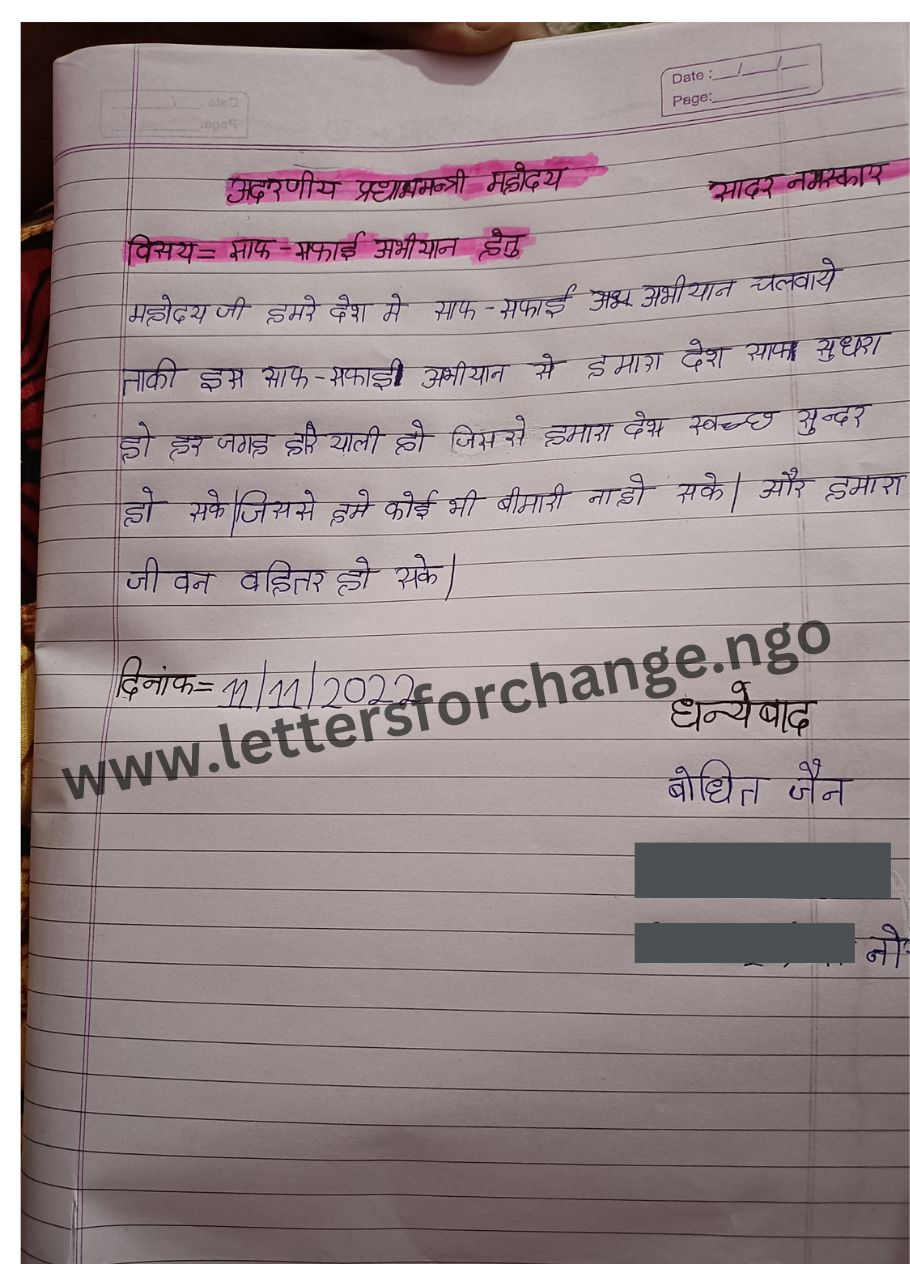 Date :__/__/__
Page:
अदरणीय प्रधानमन्त्री महोदय सादर नमस्कार
विसय= साफ-सफाई अभीयान हेतु
महोदय जी हमरे देश मे साफ-सफाई अभीयान चलवाये
ताकी इस साफ-सफाई अभीयान से हमारा देश साफ सुधरा
हो हर जगह हरियाली हो जिससे हमारा देश स्वच्छ सुन्दर
हो सके|जिससे हमे कोई भी बीमारी ना हो सके| और हमारा
जीवन वहितर हो सके|
दिनांक= 11/11/2022
www.lettersforchange.ngo
धन्येबाद
बोधित जैन